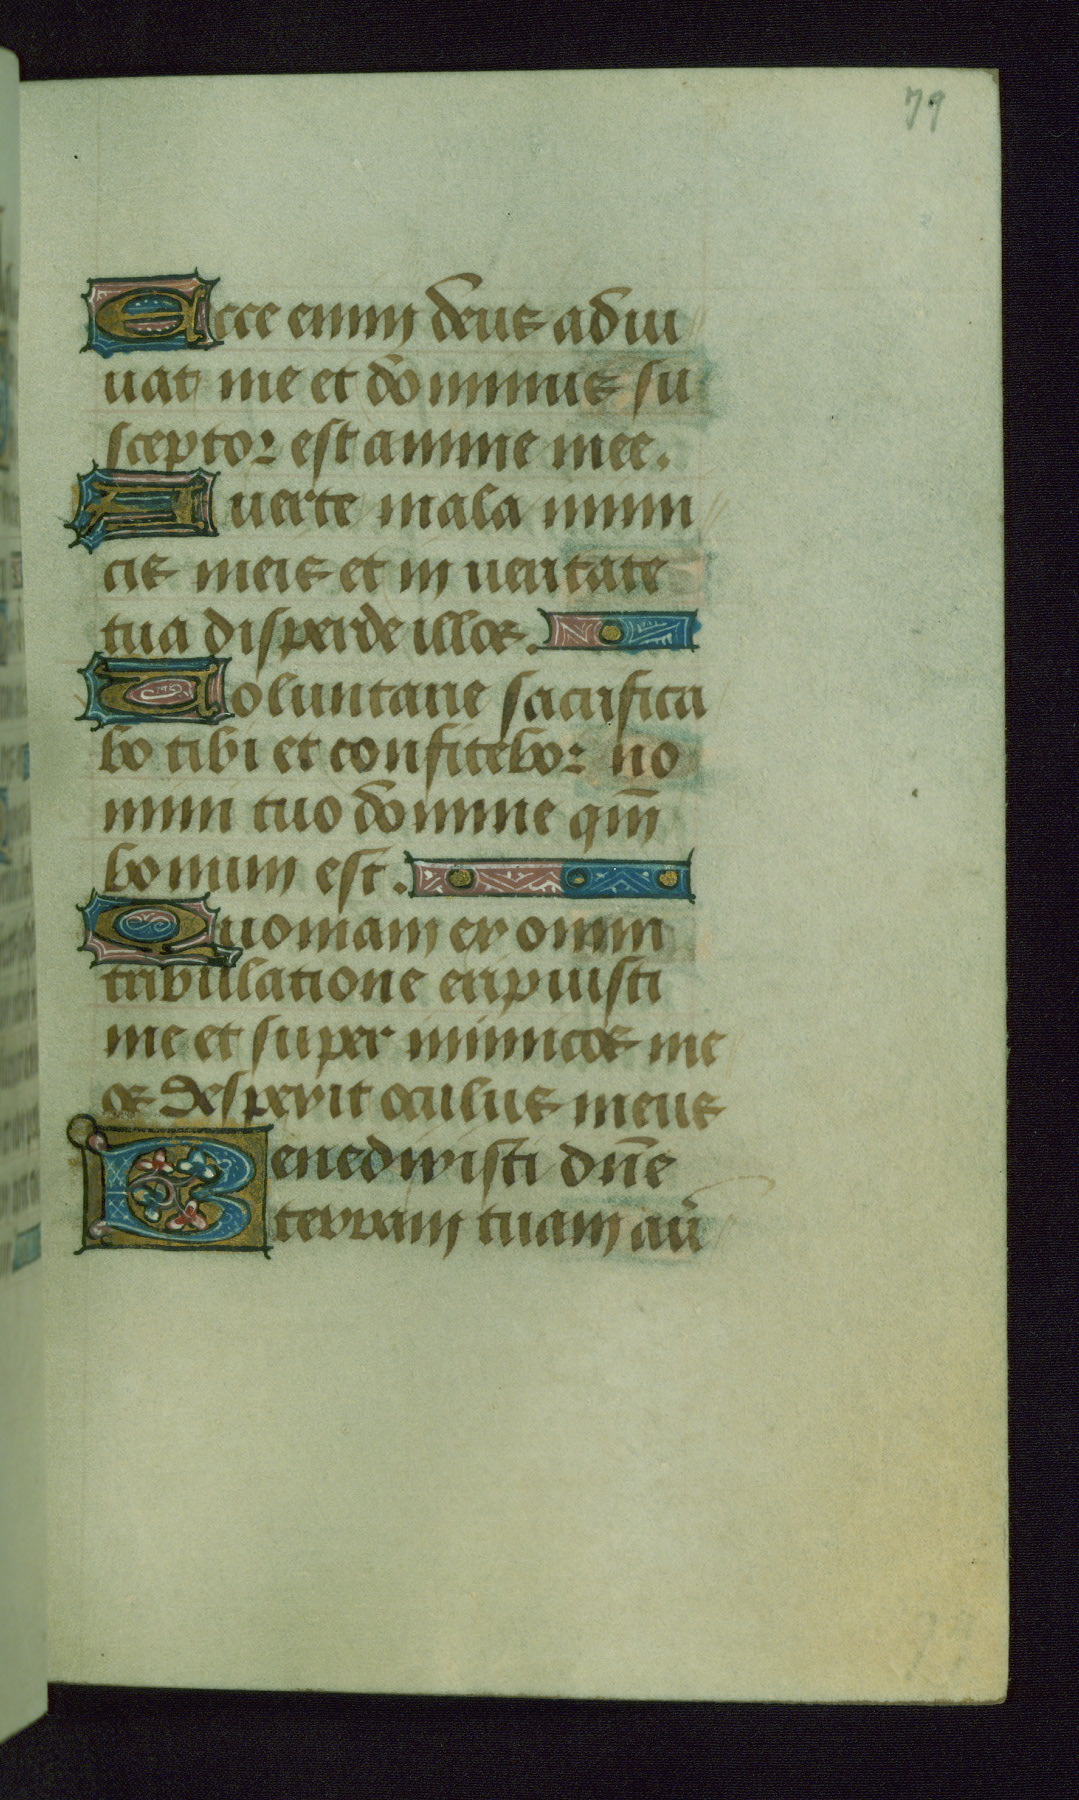 79
Ecce enim deus adiu
uat me et dominus su
sceptor est anime mee.
Auerte mala inimi
cis meis et in ueritate
tua disperde illos.
Uoluntarie sacrifica
bo tibi et confitebor no
mini tuo domine qm̄
bonum est.
Quoniam ex omni
tribulatione eripuisti
me et super inimicos me
os despexit oculus meus
Benedixisti dn̄e
terram tuam aū